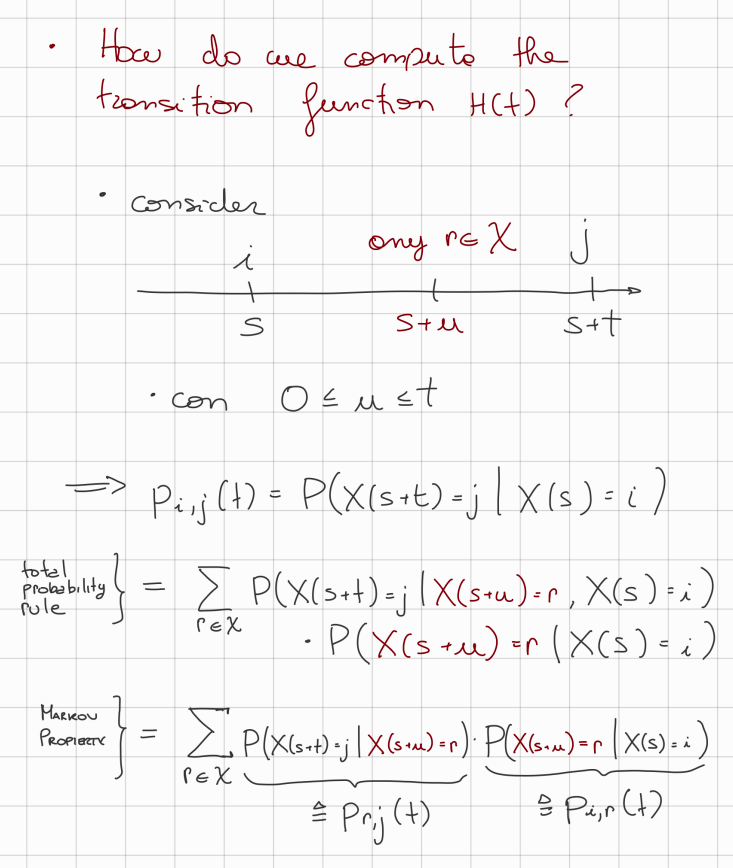 • How do we compute the
transition function H(t) ?
• consider
i any r ∈ X j
s s+u s+t
• con 0 ≤ u ≤ t
⟹ p_{i,j}(t) = P(X(s+t) = j | X(s) = i)
total probability rule } = ∑_{r∈X} P(X(s+t) = j | X(s+u) = r, X(s) = i)
· P(X(s+u) = r | X(s) = i)
MARKOV PROPIERTY } = ∑_{r∈X} P(X(s+t) = j | X(s+u) = r) · P(X(s+u) = r | X(s) = i)
≜ p_{r,j}(t) ≜ p_{i,r}(t)